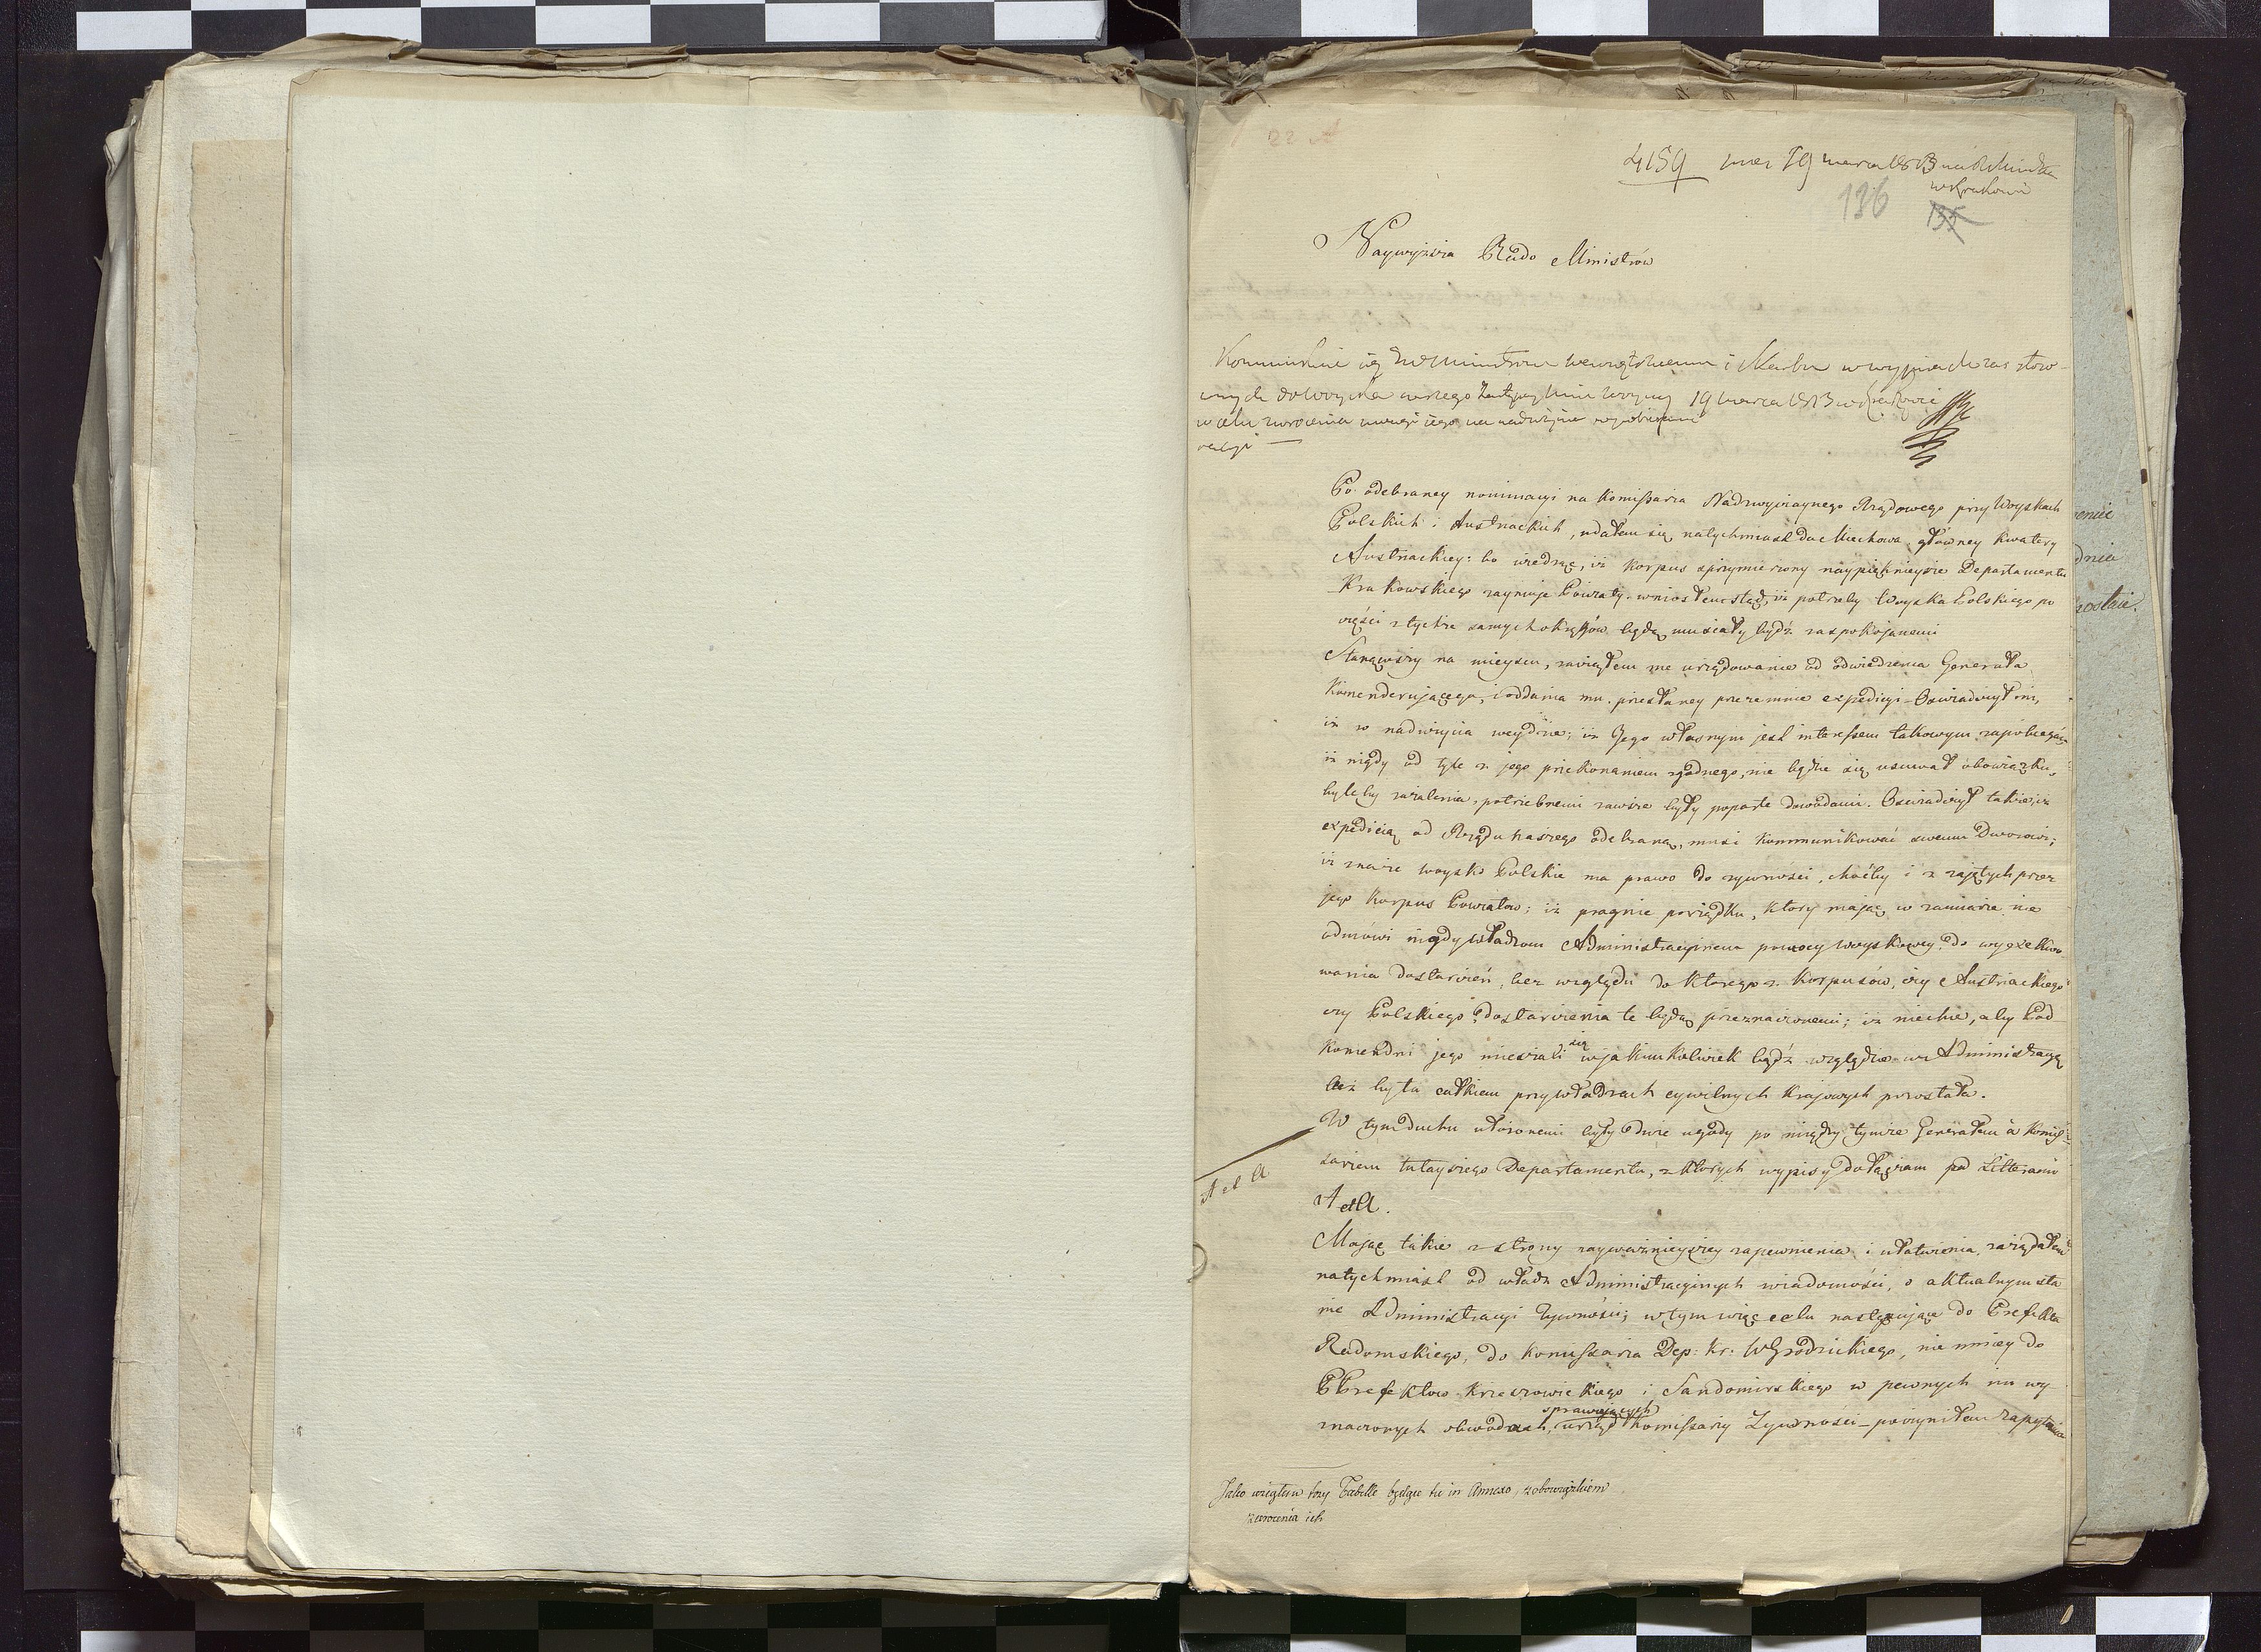 22 A
4159 19 marca 1813
w Krakowie
136 135
Naywyższa Rado Ministrów
Kommunikuie się Ministrom Wewnętrznemu i Skarbu w wypisach zas stow
nych do Woyska 19 marca 1813 w Krakowie
w celu zwrocenia uwagi iego na nadużycie w pobieraniu
racyi
Po odebraney nominacyi na Komissarza Nadzwyczaynego Rządowego przy Woyskach
Polskich i Austriackich, udałem się natychmiast do Miechowa, główney Kwatery
Austriackiey: bo wiedząc, iż korpus sprzymierzony naypięknieysze Departamentu
Krakowskiego zaymuje Powiaty, wniosłem stąd, iż potrzeby Woyska Polskiego po
części z tychże samych okręgów będą musiały bydź zaspokojonemi
Stanąwszy na mieyscu, zacząłem me urzędowanie od odwiedzenia Generała
Komenderującego, i oddania mu przesłaney przezemnie expedicyi - Oświadczył mi,
iż w nadużycia weydzie; iż Jego własnym jest interessem takowym zapobiegać,
iż nigdy od tyle z jego przekonaniem zgodnego, nie będzie się usuwał obowiązku,
byleby zażalenia, potrzebnemi zawsze były poparte dowodami. Oświadczył także, iż
expedicią od Rządu naszego odebraną, musi kommunikować swemu Dworowi;
iż znaie woysko Polskie ma prawo do żywności, choćby i z zajętych przez
jego Korpus Powiatów; iż pragnie porządku, który mając w zamiarze nie
odmówi nigdy władzom Administracyinem pomocy woyskowey, do wyexekwo
wania dostarczeń, bez względu do którego z Korpusów, czy Austriackiego
czy Polskiego, dostarczenia te będą przeznaczonemi; iż niechce, aby Pod
Komendni jego mieszali się w jakimkolwiek bądź względzie w Administracyą
leż byta całkiem przy władzach cywilnych krajowych pozostała.
W tym duchu ułożonemi były dwie ugody po między tymże Generałem a Komis
sarzem tutayszego Departamentu, z których wypisy dołączam pod Litterami
A et B.
A et B
Mając takie z strony nayważnieyszey zapewnienia i ułatwienia, zażądałem
natychmiast od władz Administracyinych wiadomości, o aktualnym sta
nie Administracyi Żywności; w tym więc celu następujące do Prefekta
Radomskiego, do Komissarza Dep: Kr: WGrodzickiego, nie mniey do
PPrefektow Krzeszowickiego i Sandomirskiego w pewnych im wy
znaczonych obwodach, sprawujących urząd Komissarzy Żywności - poczyniłem zapytania
Jako wziąłem trzy Tabelle będące tu in Annexo, z obowiązkiem
zwrocenia ich
enie
dnia
zostaie.